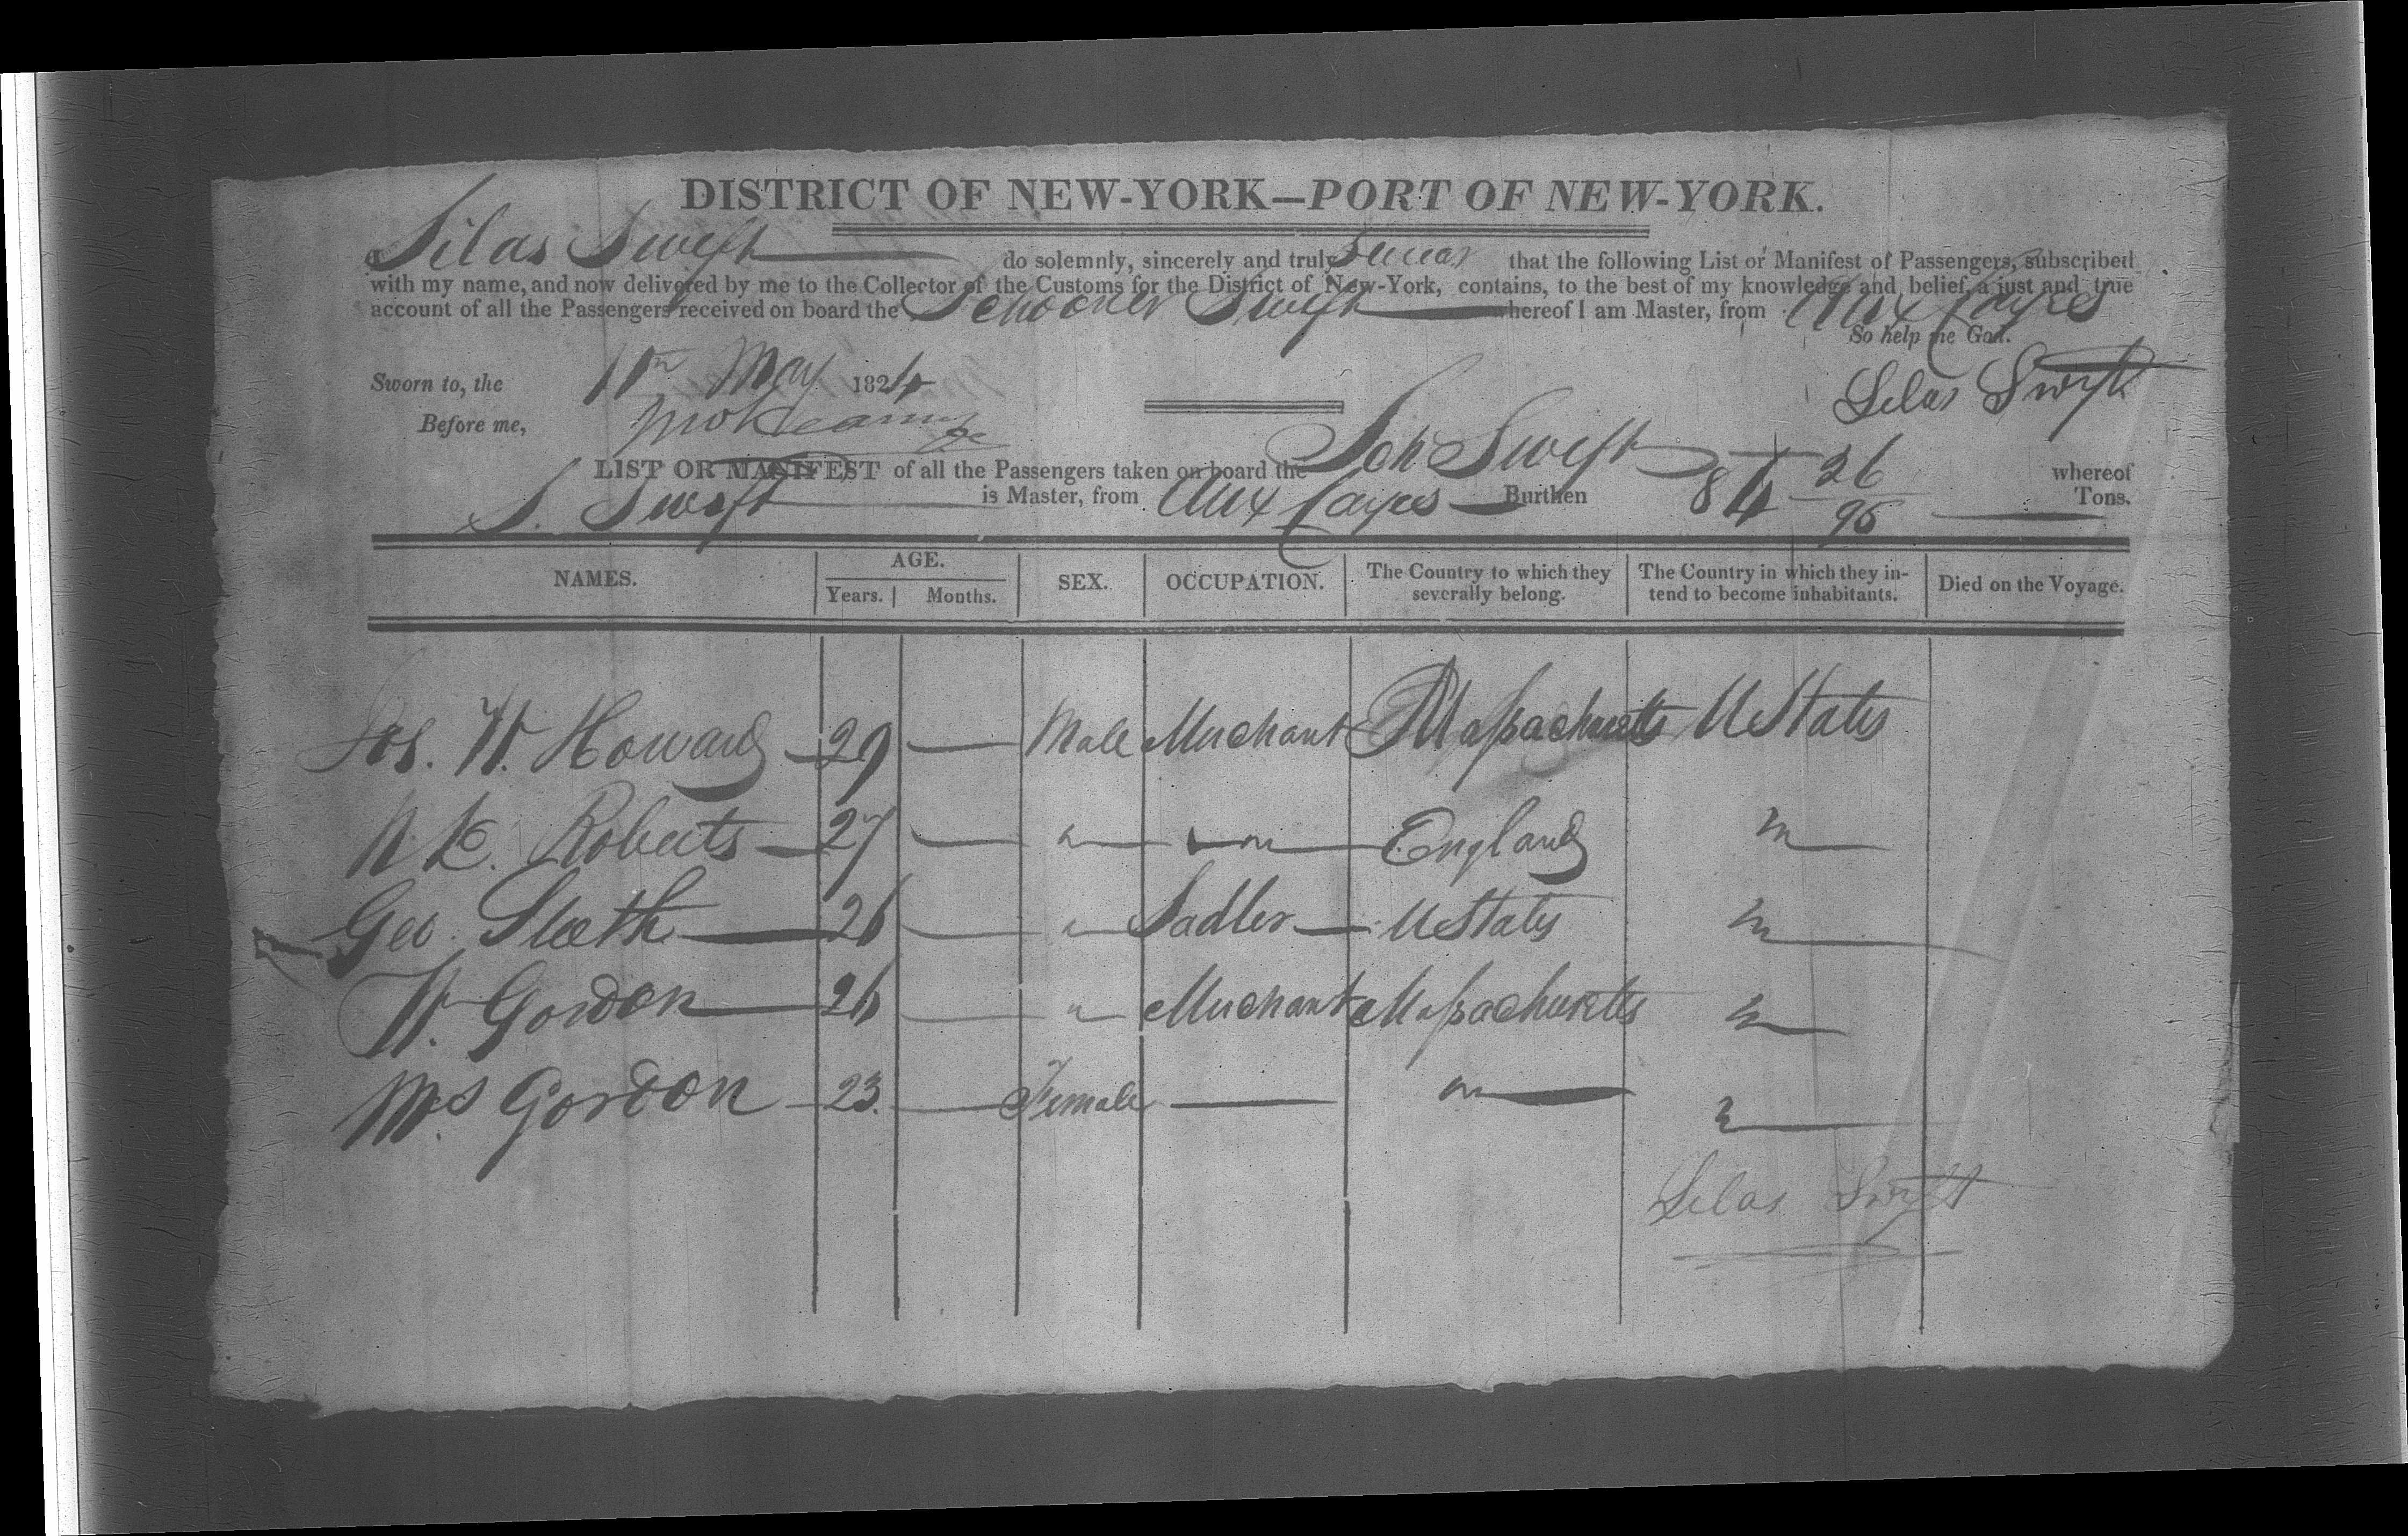 DISTRICT OF NEW-YORK—PORT OF NEW-YORK.
I Silas Swift do solemnly, sincerely and truly Swear that the following List or Manifest of Passengers, subscribed
with my name, and now delivered by me to the Collector of the Customs for the District of New-York, contains, to the best of my knowledge and belief, a just and true
account of all the Passengers received on board the Schooner Swift whereof I am Master, from Aux Cayes
So help me God.
Sworn to, the May 1824
Silas Swift
Before me,
LIST OR MANIFEST of all the Passengers taken on board the Sch Swift whereof
S. Swift is Master, from Aux Cayes Burthen 84 26/95 Tons.
NAMES. AGE. Years. Months. SEX. OCCUPATION. The Country to which they severally belong. The Country in which they intend to become inhabitants. Died on the Voyage.
Jos. W. Howard 29 — Male Merchant Massachusetts UStates
Roberts 27 — " " England "
Geo. Sleeth 26 — " Sadler UStates "
W. Gordon 26 — " Merchant Massachusetts "
Mrs Gordon 23. — Female — " "
Silas Swift